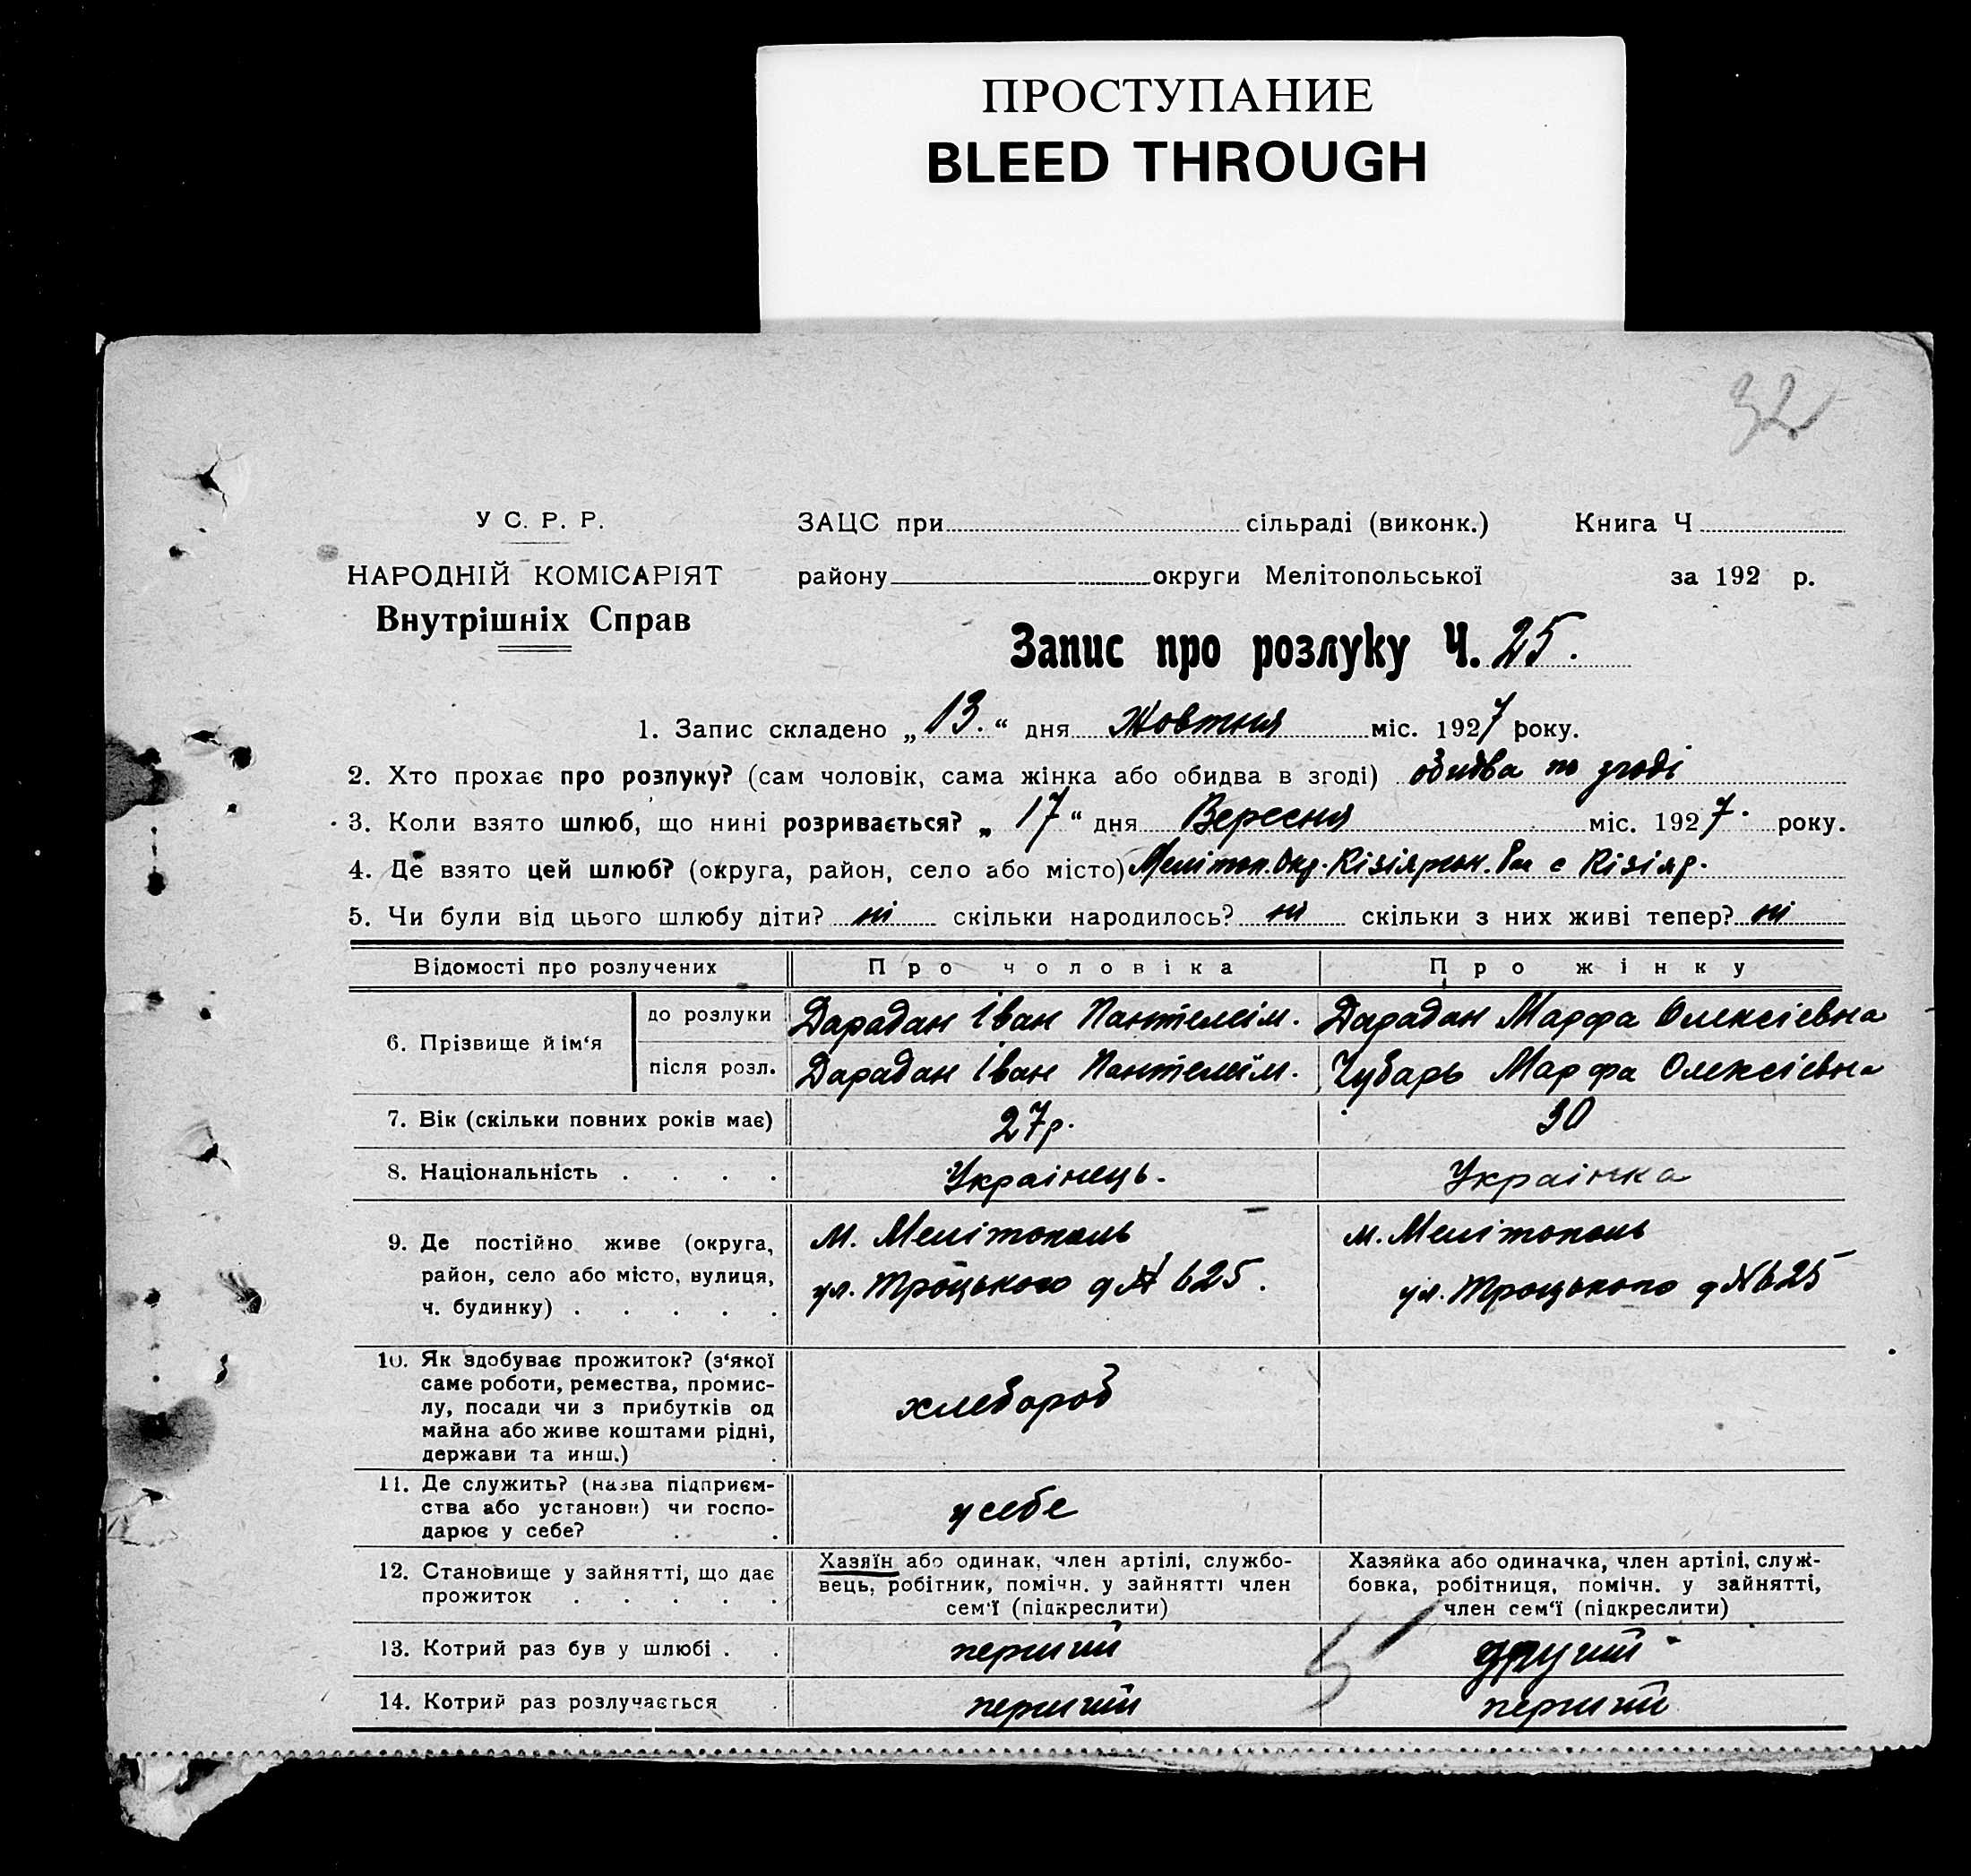 ПРОСТУПАНИЕ
BLEED THROUGH
32
У С. Р. Р.
ЗАЦС при сільраді (виконк.) Книга Ч
НАРОДНІЙ КОМІСАРІЯТ
району округи Мелітопольської за 192 р.
Внутрішніх Справ
Запис про розлуку Ч. 25.
1. Запис складено „13.“ дня Жовтня міс. 1927 року.
2. Хто прохає про розлуку? (сам чоловік, сама жінка або обидва в згоді) обидва по згоді
3. Коли взято шлюб, що нині розривається? „17“ дня Вересня міс. 1927. року.
4. Де взято цей шлюб? (округа, район, село або місто) Мелітоп. Окр. Кізіярськ. Рн с Кізіяр.
5. Чи були від цього шлюбу діти? ні скільки народилось? ні скільки з них живі тепер? ні
Відомості про розлучених Про чоловіка Про жінку
6. Прізвище й ім‘я
до розлуки Дарадан Іван Пантелеім. Дарадан Марфа Олексієвна
після розл. Дарадан Іван Пантелеїм. Чубарь Марфа Олексієвна
7. Вік (скільки повних років має) 27р. 30
8. Національність . . . . Украінець. Украінка
9. Де постійно живе (округа,
район, село або місто, вулиця,
ч. будинку) . . . . .
м. Мелітополь
ул. Троцького д № 625.
м. Мелітополь
ул. Троцького д № 625
10. Як здобуває прожиток? (з‘якої
саме роботи, ремества, промис-
лу, посади чи з прибутків од
майна або живе коштами рідні,
держави та инш.) .
хлебороб
11. Де служить? (назва підприєм-
ства або установи) чи госпо-
дарює у себе? . .
у себе
12. Становище у зайнятті, що дає
прожиток . . . . .
Хазяїн або одинак, член артілі, службо-
вець, робітник, помічн. у зайнятті член
сем‘ї (підкреслити)
Хазяйка або одиначка, член артілі, служ-
бовка, робітниця, помічн. у зайнятті,
член сем‘ї (підкреслити)
13. Котрий раз був у шлюбі . . перший другий
14. Котрий раз розлучається . перший перший